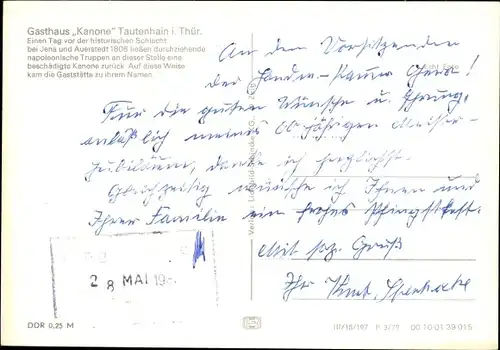 Gasthaus „Kanone" Tautenhain i. Thür.
Einen Tag vor der historischen Schlacht
bei Jena und Auerstedt 1806 ließen durchziehende
napoleonische Truppen an dieser Stelle eine
beschädigte Kanone zurück. Auf diese Weise
kam die Gaststätte zu ihrem Namen.
An den Vorsitzenden
der Gera!
Für die guten Wünsche u. Ehrung,
anläßlich meines 60 jährigen Meister-
Jubiläum, danke ich herzlichst.
Gleichzeitig wünsche ich Ihnen und
Ihrer Familie ein frohes Pfingstfest.
Mit soz. Gruß
Ihr Kurt
28 MAI 19
DDR 0,25 M
III/18/197 P 3/79 00 10 01 39 015